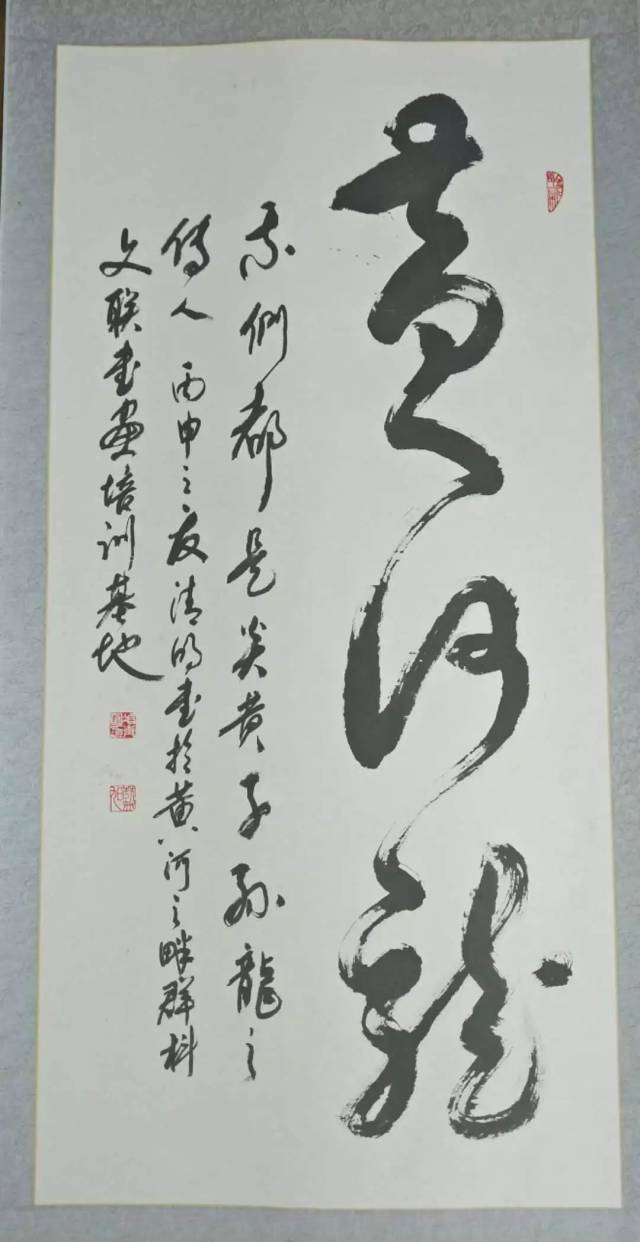 黄河龙
我們都是炎黄子孙龍之
傳人 丙申之友清明书於黄河之畔群科
文联书画培训基地